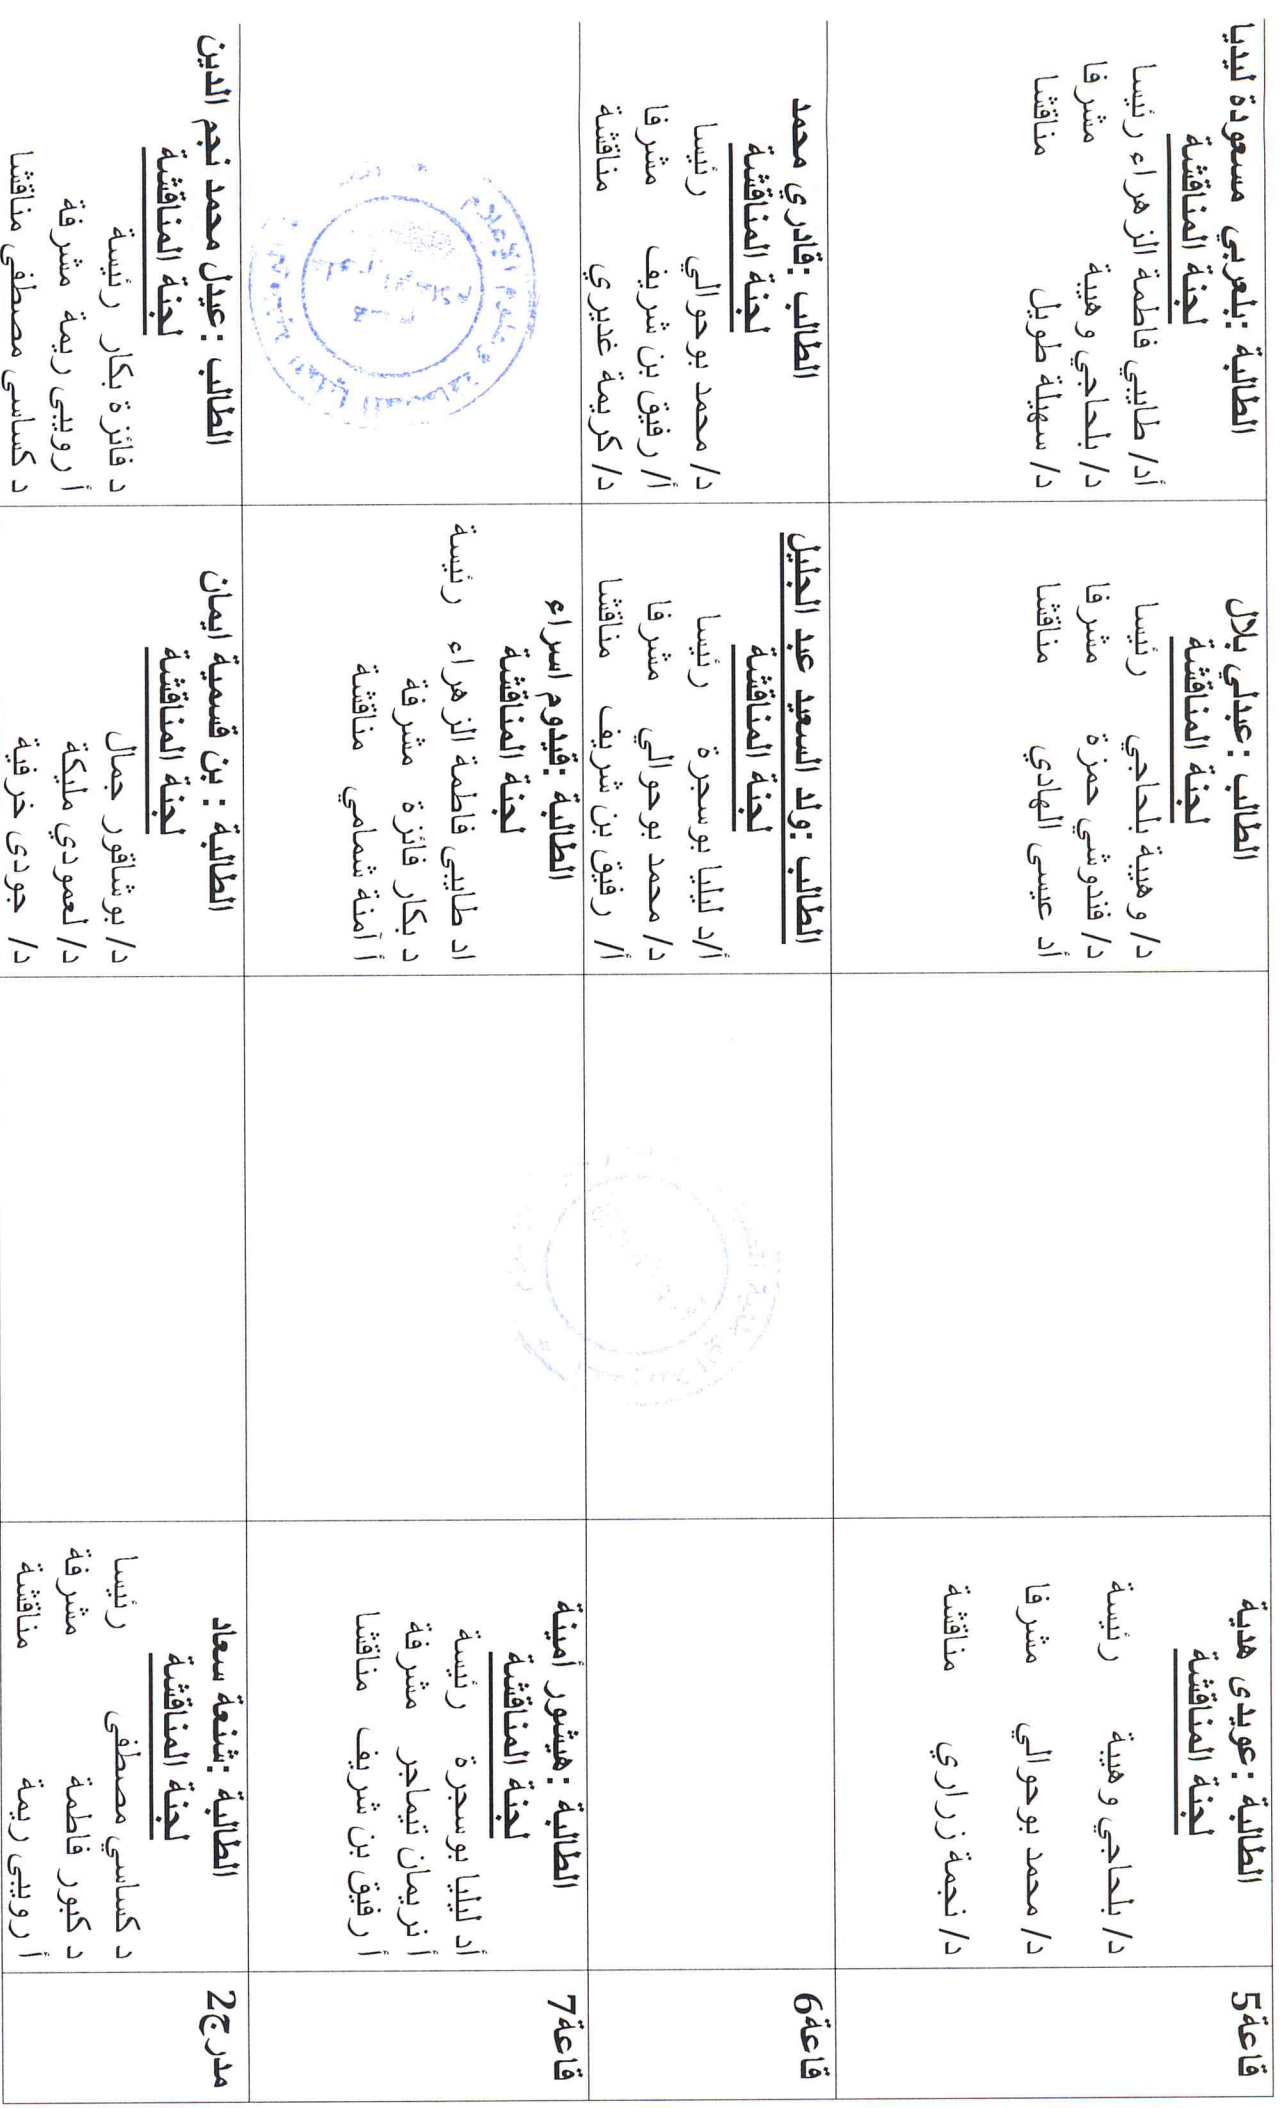 قاعة5
الطالبة :عويدى هدية
لجنة المناقشة
د/ بلحاجي وهيبة رئيسة
د/ محمد بوحوالي مشرفا
د/ نجمة زراري مناقشة
الطالب :عبدلي بلال
لجنة المناقشة
د/ وهيبة بلحاجي رئيسا
د/ فندوشي حمزة مشرفا
أد عيسى الهادي مناقشا
الطالبة :بلعربي مسعودة ليديا
لجنة المناقشة
أد/ طايبي فاطمة الزهراء رئيسا
د/ بلحاجي وهيبة مشرفا
د/ سهيلة طويل مناقشا
قاعة6
الطالب :ولد السعيد عبد الجليل
لجنة المناقشة
أ/د ليليا بوسجرة رئيسا
د/ محمد بوحوالي مشرفا
أ/ رفيق بن شريف مناقشا
الطالب :قادري محمد
لجنة المناقشة
د/ محمد بوحوالي رئيسا
أ/ رفيق بن شريف مشرفا
د/ كريمة غديري مناقشة
قاعة7
الطالبة :هيشور أمينة
لجنة المناقشة
أد ليليا بوسجرة رئيسة
أ نريمان تيماجر مشرفة
أ رفيق بن شريف مناقشا
الطالبة :قيدوم اسراء
لجنة المناقشة
اد طايبى فاطمة الزهراء رئيسة
د بكار فائزة مشرفة
أ آمنة شمامي مناقشة
مدرج2
الطالبة :شنعة سعاد
لجنة المناقشة
د كساسي مصطفى رئيسا
د كبور فاطمة مشرفة
أ رويبى ريمة مناقشة
الطالبة : بن قسمية ايمان
لجنة المناقشة
د/ بوشاقور جمال
د/ لعمودي مليكة
د/ جودى خرفية
الطالب :عيدل محمد نجم الدين
لجنة المناقشة
د فائزة بكار رئيسة
أ رويبى ريمة مشرفة
د كساسى مصطفى مناقشا